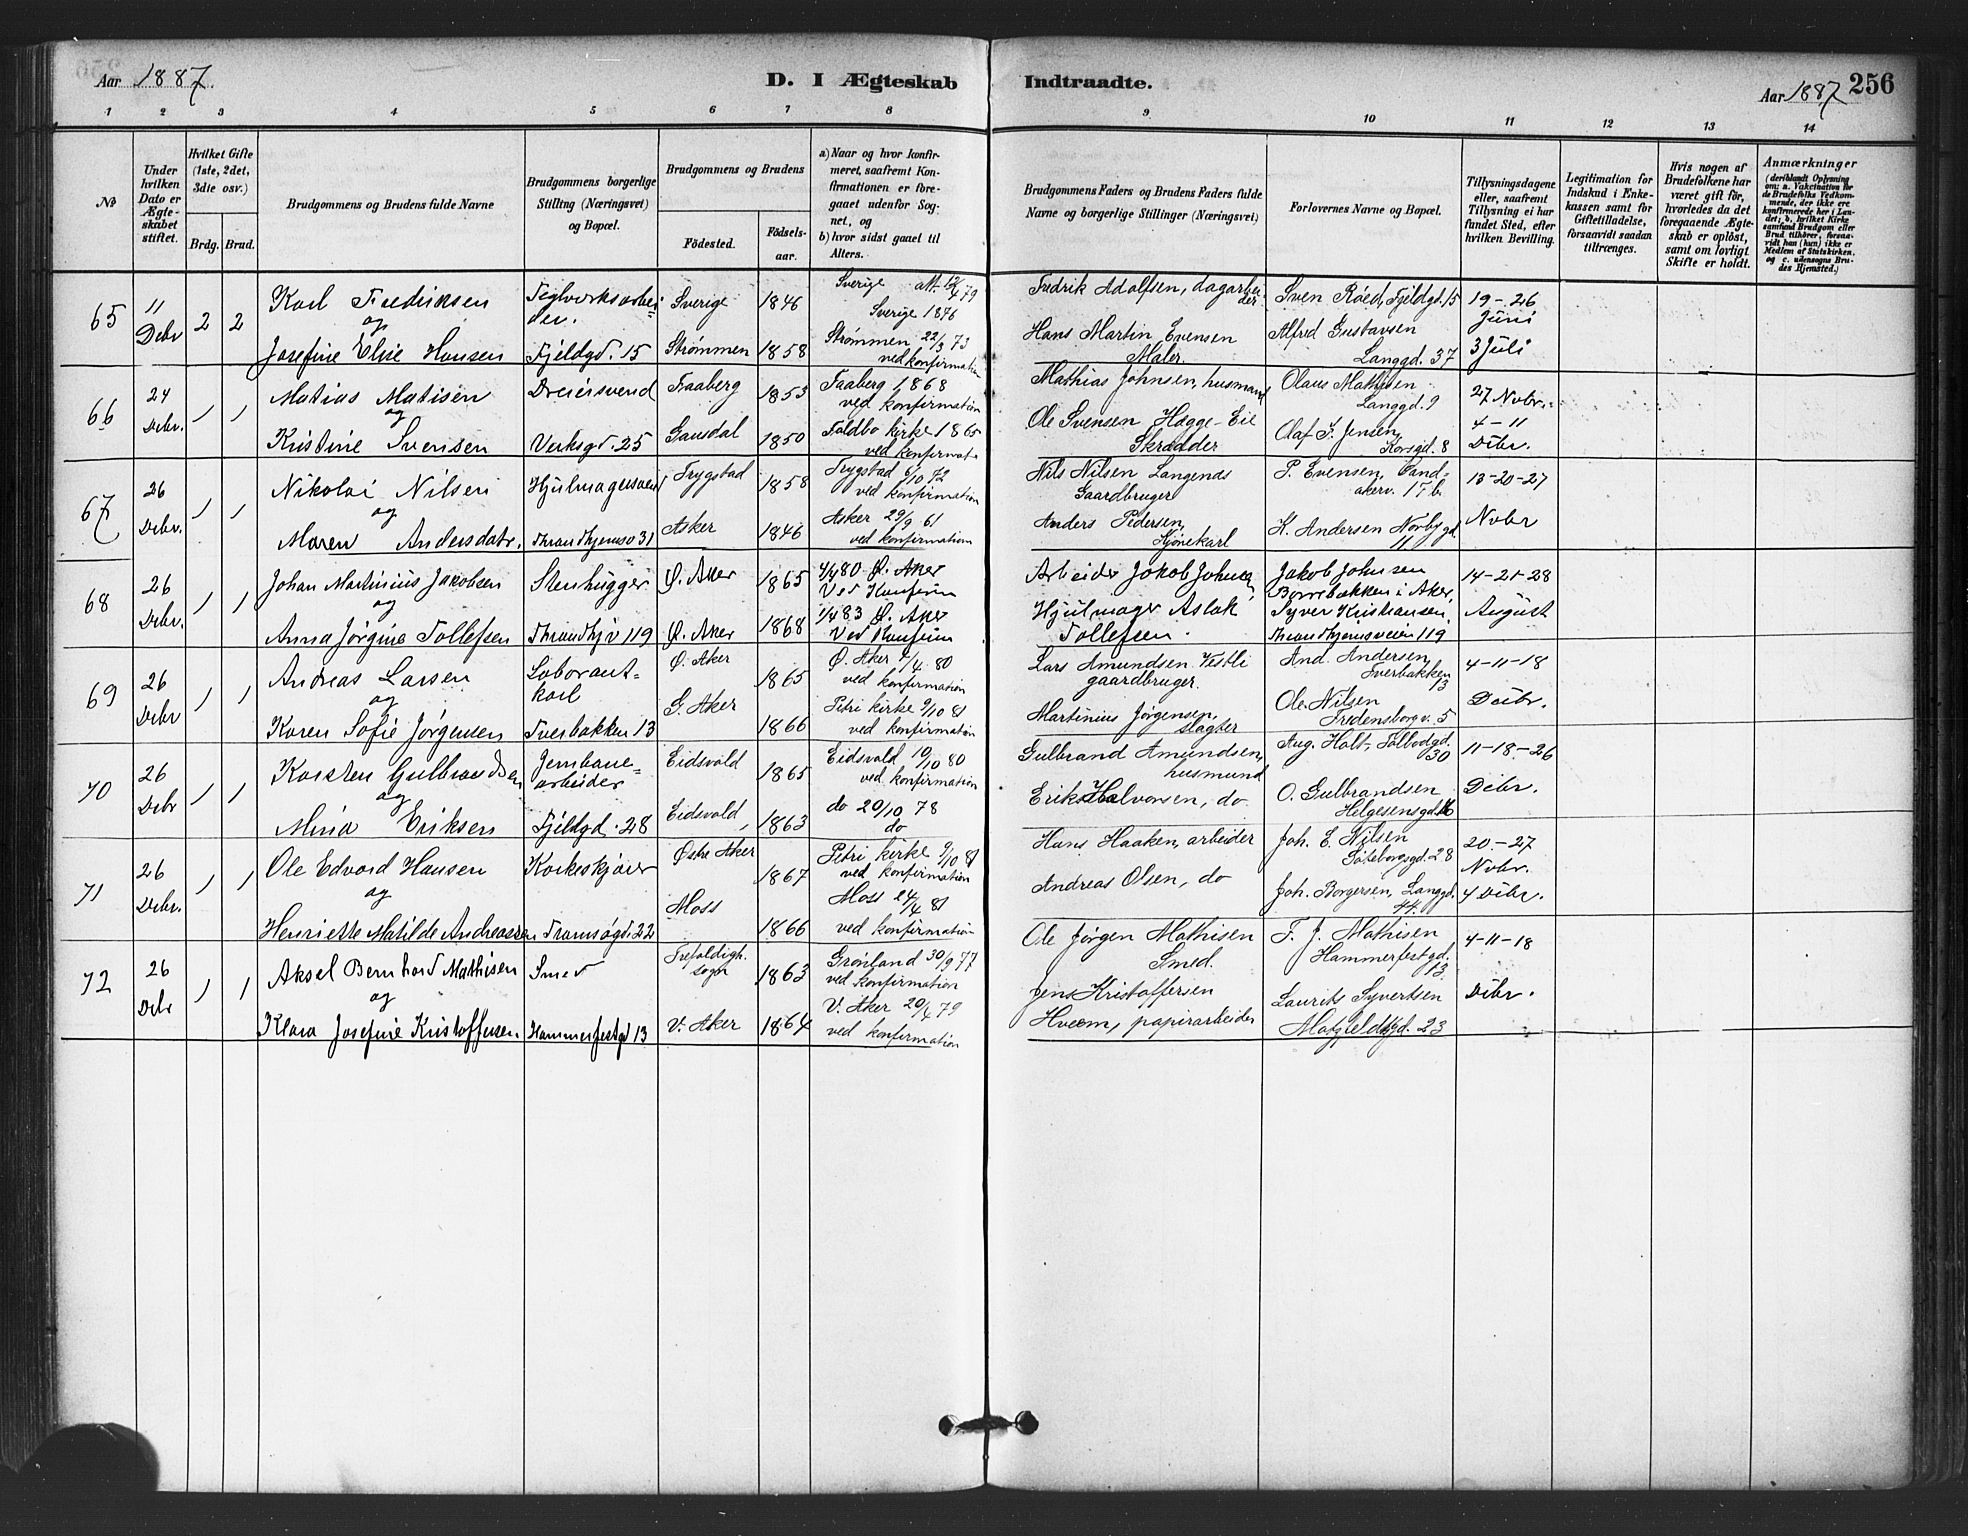 Aar 1887.
D. I Ægteskab
Indtraadte.
Aar 1887
256
1 2 3 4 5 6 7 8 9 10 11 12 13 14
№
Under hvilken Dato er Ægteskabet stiftet.
Hvilket Gifte (1ste, 2det, 3die osv.)
Brdg. Brud.
Brudgommens og Brudens fulde Navne
Brudgommens borgerlige Stilling (Næringsvei) og Bopæl.
Brudgommens og Brudens
Fødested.
Fødselsaar.
a) Naar og hvor konfirmeret, saafremt Konfirmationen er foregaaet udenfor Sognet, og
b) hvor sidst gaaet til Alters.
Brudgommens Faders og Brudens Faders fulde Navne og borgerlige Stillinger (Næringsvei)
Forlovernes Navne og Bopæl.
Tillysningsdagene eller, saafremt Tillysning ei har fundet Sted, efter hvilken Bevilling.
Legitimation for Indskud i Enkekassen samt for Giftetilladelse, forsaavidt saadan tiltrænges.
Hvis nogen af Brudefolkene har været gift før, hvorledes da det foregaaende Ægteskab er opløst, samt om lovligt Skifte er holdt.
Anmærkninger
(deriblandt Oplysning om: a. Vakcination for de Brudefolks Vedkommende, der ikke ere konfirmerede her i Landet; b. hvilket Kirkesamfund Brudgom eller Brud tilhører, forsaavidt han (hun) ikke er Medlem af Statskirken, og c. udensogns Brudes Hjemsted.)
65
11 Debr
2 2
Karl Fredriksen
og
Josefine Elise Hansen
Teglverksarbeider.
Fjeldgd. 15
Sverige 1846
Strømmen 1858
Sverige
Sverige 1876
Strømmen 22/3 73
ved konfirmation
Fredrik Adolfsen, dagarbeider
Hans Martin Evensen
Maler.
Sven Røed, Fjeldgd. 15
Alfred Gustavsen
Langgd. 37
19-26
Juni
3 Juli
66
24 Debr.
1 1
Matias Matisen
og
Kristine Svensen
Dreiersvend
Verksgd. 25
Faaberg 1853
Gausdal 1850
Faaberg 1868
ved konfirmation
Foldbo kirke 1865
ved konfirmat.
Mathias Johnsen, husmand
Ole Svensen Hægge-Eie
Skrædder
Olaus Mathisen
Langgd. 9
Olaf F. Jensen
Korsgd. 8
27 Novbr.
4-11
Debr.
67
26 Debr.
1 1
Nikolai Nilsen
og
Maren Andersdatr.
Hjulmagersvend
Throndhjemsv 31
Trygstad 1858
Asker 1846
Trygstad 6/10 72
ved konfirmation
Asker 29/9 61
ved konfirmation
Nils Nilsen Langends
Gaardbruger
Anders Pedersen
P. Evensen, Sandakerv. 17 b.
K. Andersen Norbygd.
11
13-20-27
Novbr
68
26 Debr.
1 1
Johan Martinius Jakobsen
og
Anna Jørgine Tollefsen
Stenhugger
Throndhjv 119
Ø. Aker 1865
Ø. Aker 1868
4/4 80 Ø. Aker
Ved Konfirm
1/4 83 Ø. Aker
Ved Konfirm
Arbeider Jakob Johnsen
Hjulmager Aslak
Tollefsen.
Jakob Johnsen
Børrebækken i Aker,
Syver Kristiansen
Throndhjemsveien 119
14-21-28
August
69
26 Debr
1 1
Andreas Larsen
og
Karen Sofie Jørgensen
Laborantkarl
Tverbakken 13
Ø. Aker 1865
G. Aker 1866
Ø. Aker 4/4 80
ved konfirmation
Petri kirke 9/10 81
ved konfirmation
Lars Amundsen Vestli
gaardbruger.
Martinius Jørgensen,
slagter
And. Andersen
Tverbakken
13
Ole Nilsen
Fredensborgv. 5
4-11-18
Debr.
70
26 Debr
1 1
Karsten Gulbrandsen
og
Mina Eriksen
Jernbanearbeider
Fjeldgd. 28
Eidsvold 1865
Eidsvold 1863
Eidsvold 10/10 80
ved konfirmation
do 20/10 78
do
Gulbrand Amundsen,
husmand
Erik Halvorsen, do
Aug. Holt, Tolbodgd.
30
O. Gulbrandsen
Helgesensgd. 16
11-18-26
Debr.
71
26 Debr.
1 1
Ole Edvard Hansen
og
Henriette Matilde Andreassen
Korkeskjærer
Tromsøgd. 22
Østre Aker 1867
Moss 1866
Petri kirke 9/10 81
ved konfirmation
Moss 24/4 81
ved konfirmation
Hans Haaken, arbeider
Andreas Olsen, do
Joh. E. Nilsen
Gøteborggd. 28
Joh. Borgersen, Langgd.
44.
20-27
Novbr.
4 Debr.
72
26 Debr
1 1
Aksel Bernhard Mathisen
og
Klara Josefine Kristoffersen
Smed
Hammerfestgd 13
Trefoldigh. sogn 1863
V. Aker 1864
Grønland 30/9 77
ved konfirmation
V. Aker 20/4 79
ved konfirmation
Ole Jørgen Mathisen
Smed.
Jens Kristoffersen
Hveem, papirarbeider
F. J. Mathisen
Hammerfestgd.
13
Laurits Syvertsen
Matzfeldtgd. 23
4-11-18
Debr.